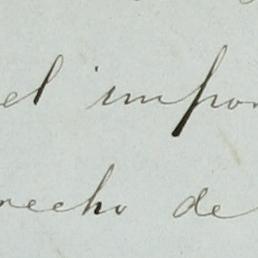 el impor
recho de